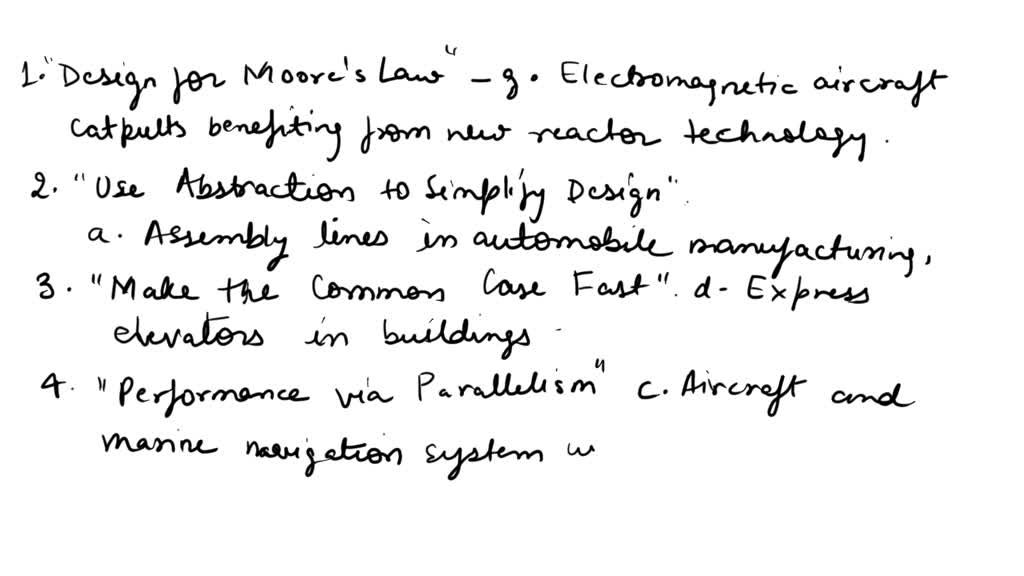 1. "Design for Moore's Law" - g. Electromagnetic aircraft
catpults benefiting from new reactor technology.
2. "Use Abstraction to Simplify Design".
a. Assembly lines in automobile manufacturing,
3. "Make the Common Case Fast". d- Express
elevators in buildings
4. "Performance via Parallelism" c. Aircraft and
marine navigation system w